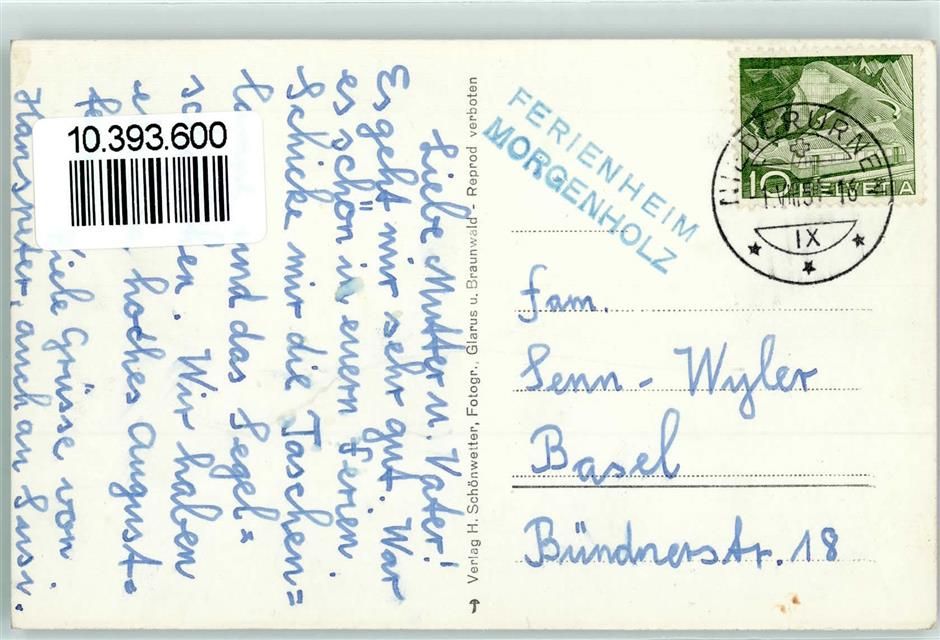 Liebe Mutter u. Vater!
Es geht mir sehr gut. War
es schön in euern Ferien.
Schicke mir die Taschen=
und das Segel=
Wir haben
hoches August=
Viele Grüsse von
Hanspeter, auch an Susi.
10.393.600
Verlag H. Schönwetter, Fotogr., Glarus u. Braunwald - Reprod verboten
FERIENHEIM
MORGENHOLZ
10 HELVETIA
NIEDERURNEN
IX
Fam.
Senn - Wyler
Basel
Bündnerstr. 18